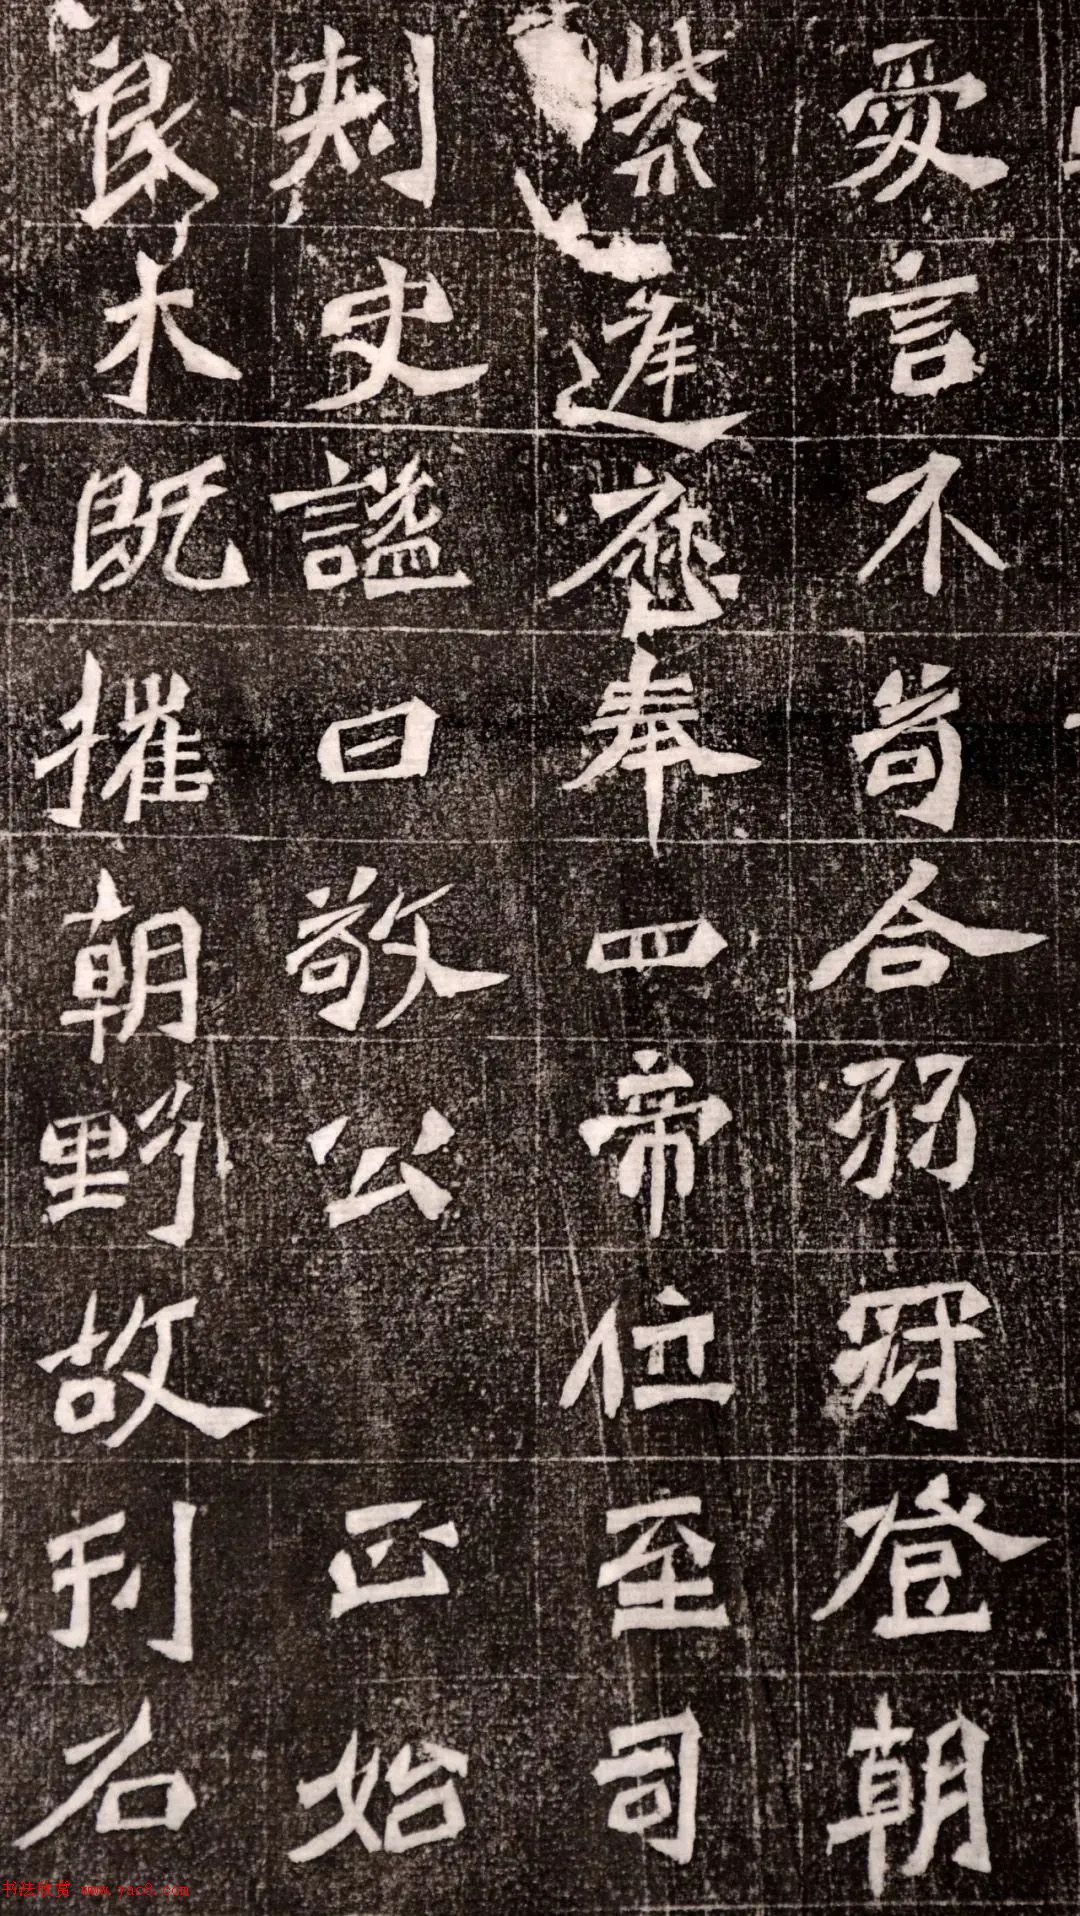 爱言不苟合弱冠登朝
紫遅應奉四帝位至司
刺史謚曰敬公正始
良木既摧朝野故刊石
书法欣赏 www.yac8.com